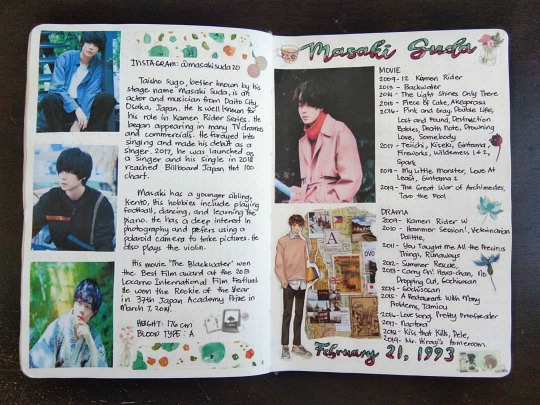 INSTAGRAM: @masakisuda20
Taisho Sugo, better known by his
stage name Masaki Suda, is an
actor and musician from Daito City,
Osaka, Japan. He is well known for
his role in Kamen Rider Series. He
began appearing in many TV dramas
and commercials. He forayed into
singing and made his debut as a
singer. 2017, he was launched as
a singer and his single in 2018
reached Billboard Japan Hot 100
chart.
Masaki has a younger sibling,
Kento, his hobbies include playing
football, dancing, and learning the
piano. He has a deep interest in
photography and prefers using a
polaroid camera to take pictures. He
also plays the violin.
His movie 'The Blackwater' won
the Best Film award at the 2013
Locarno International Film Festival.
He won the Rookie of the Year
in 37th Japan Academy Prize in
March 7, 2014.
HEIGHT: 176 cm
BLOOD TYPE: A
Masaki Suda
MOVIE
2009-12 Kamen Rider
2013 - Backwater
2014 - The Light Shines Only There
2015 - Piece of Cake, Akegarasu
2016 - Pink and Gray, Double Life,
Lost and Found, Destruction
Babies, Death Note, Drowning
Love, Somebody
2017 - Teiichi, Kiseki, Gintama,
Fireworks, Wilderness 1 & 2,
Spark
2018 - My Little Monster, Love At
Least, Gintama 2
2019 - The Great War of Archimedes,
Taro the Fool
DRAMA
2009 - Kamen Rider W
2010 - Hammer Session!, Veterinarian
Dolittle,
2011 - You Taught Me All the Precious
Things, Runaways
2012 - Summer Rescue,
2013 - Carry On! Hara-chan, No
Dropping Out, Gochisousan
2014 - Gochisousan
2015 - A Restaurant With Many
Problems, Tamiou
2016 - Love Song, Pretty Proofreader
2017 - Naotora
2018 - Kiss that Kills, Dele,
2019 - Mr. Hiiragi's Homeroom
February 21, 1993